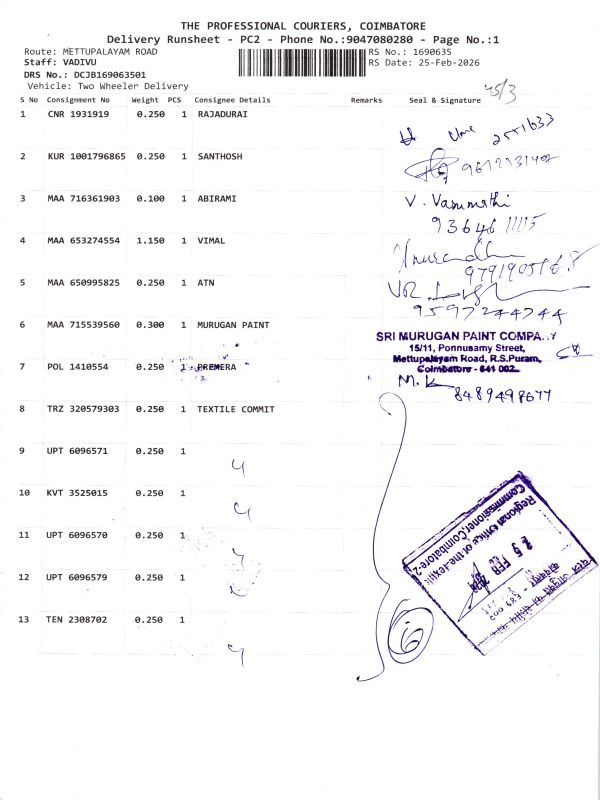 THE PROFESSIONAL COURIERS, COIMBATORE
Delivery Runsheet - PC2 - Phone No.:9047080280 - Page No.:1
Route: METTUPALAYAM ROAD
RS No.: 1690635
Staff: VADIVU
RS Date: 25-Feb-2026
DRS No.: DCJB169063501
Vehicle: Two Wheeler Delivery
45/3
S No Consignment No Weight PCS Consignee Details Remarks Seal & Signature
1 CNR 1931919 0.250 1 RAJADURAI
2 KUR 1001796865 0.250 1 SANTHOSH
3 MAA 716361903 0.100 1 ABIRAMI V. Vasumathi
9364611115
4 MAA 653274554 1.150 1 VIMAL Anuradha
5 MAA 650995825 0.250 1 ATN
9597244744
6 MAA 715539560 0.300 1 MURUGAN PAINT
SRI MURUGAN PAINT COMPA..Y
15/11, Ponnusamy Street,
Mettupalayam Road, R.S.Puram,
Coimbatore - 641 002.
7 POL 1410554 0.250 1 PREMERA M. K
8489498677
8 TRZ 320579303 0.250 1 TEXTILE COMMIT
9 UPT 6096571 0.250 1
10 KVT 3525015 0.250 1
11 UPT 6096570 0.250 1
12 UPT 6096579 0.250 1
13 TEN 2308702 0.250 1
6
Regional Office of the Textile
Commissioner, Coimbatore-2
25 FEB